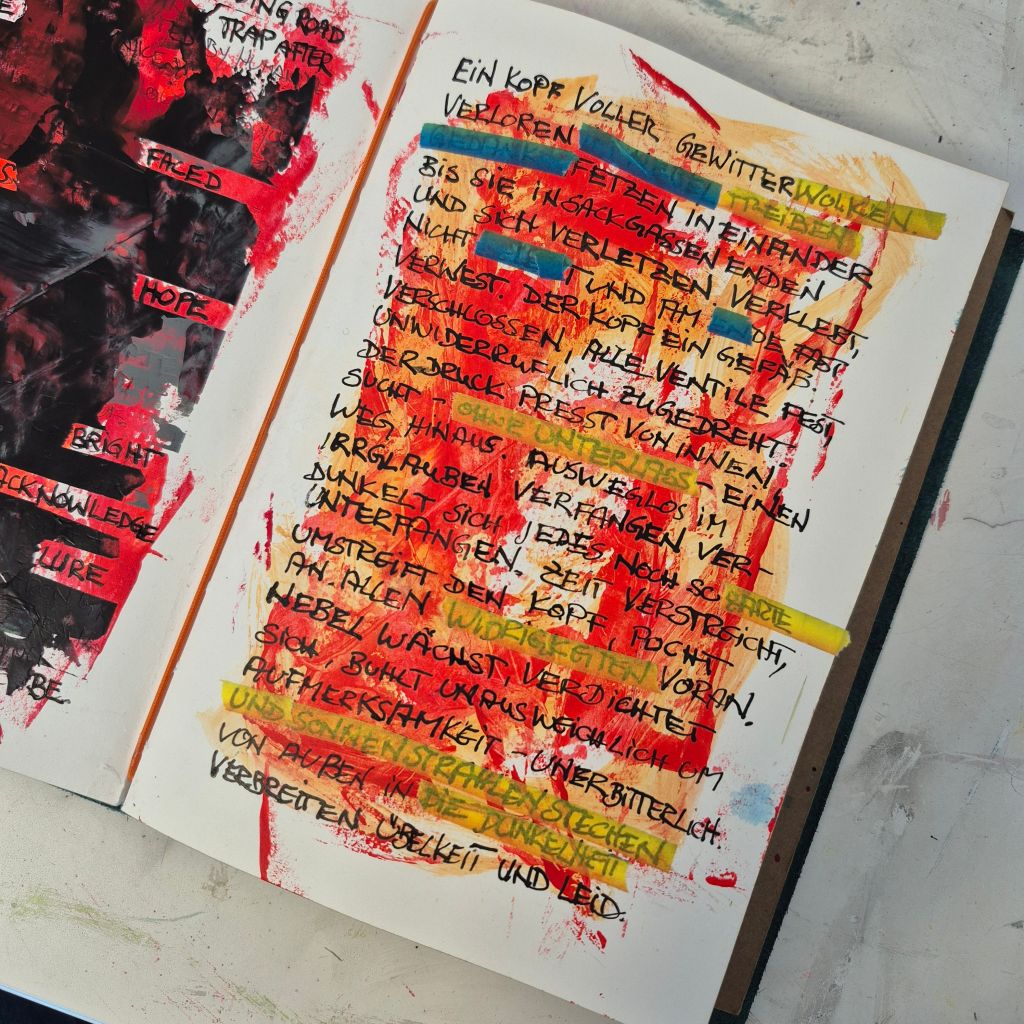 ROAD
TRAP AFTER
HOPE
BRIGHT
ACKNOWLEDGE
LURE
BE.
EIN KOPF VOLLER GEWITTERWOLKEN
VERLOREN TREIBEN
GEDANKENFETZEN INEINANDER
BIS SIE IN SACKGASSEN ENDEN
UND SICH VERLETZEN VERKLEBT,
NICHT UND AM ENDE FAST
VERWEST. DER KOPF EIN GEFÄß,
VERSCHLOSSEN, ALLE VENTILE FEST,
UNWIDERRUFLICH ZUGEDREHT.
DER DRUCK PRESST VON INNEN!
SUCHT - OHNE UNTERLASS - EINEN
WEG HINAUS. AUSWEGLOS IM
IRRGLAUBEN VERFANGEN VER-
DUNKELT SICH JEDES NOCH SO ZARTE
UNTERFANGEN. ZEIT VERSTREICHT,
UMSTREIFT DEN KOPF, POCHT
AN ALLEN WIDRIGKEITEN VORAN.
NEBEL WÄCHST, VERDICHTET
SICH, BUHLT UNAUSWEICHLICH UM
AUFMERKSAMKEIT - UNERBITTERLICH.
UND SONNENSTRAHLEN STECHEN
VON AUßEN IN DIE DUNKELHEIT
VERBREITEN ÜBELKEIT UND LEID.